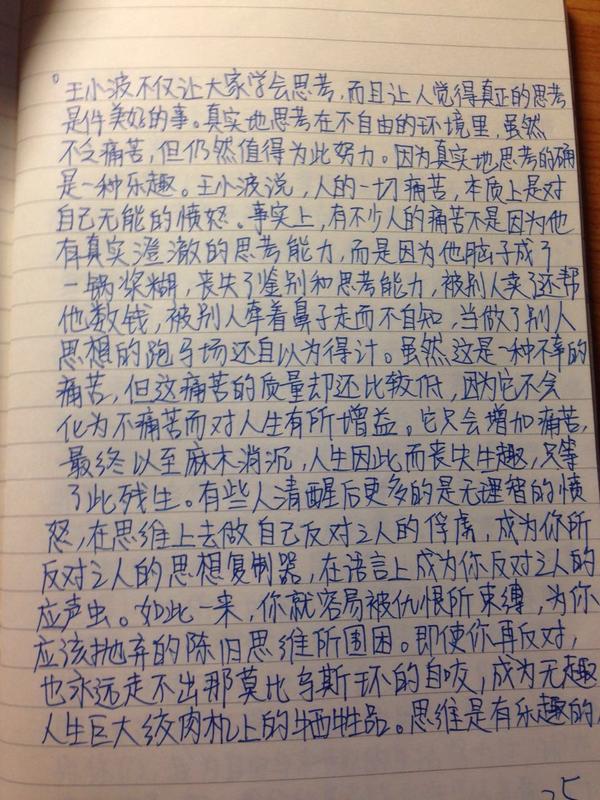 王小波不仅让大家学会思考,而且让人觉得真正的思考
是件美好的事。真实地思考在不自由的环境里,虽然
不乏痛苦,但仍然值得为此努力。因为真实地思考的确
是一种乐趣。王小波说,人的一切痛苦,本质上是对
自己无能的愤怒。事实上,有不少人的痛苦不是因为他
有真实澄澈的思考能力,而是因为他脑子成了
一锅浆糊,丧失了鉴别和思考能力,被别人卖了还帮
他数钱,被别人牵着鼻子走而不自知,当做了别人
思想的跑马场还自以为得计。虽然这是一种不幸的
痛苦,但这痛苦的质量却还比较低,因为它不会
化为不痛苦而对人生有所增益。它只会增加痛苦,
最终以至麻木消沉,人生因此而丧失生趣,只等
了此残生。有些人清醒后更多的是无理智的愤
怒,在思维上去做自己反对之人的俘虏,成为你所
反对之人的思想复制器,在语言上成为你反对之人的
应声虫。如此一来,你就容易被仇恨所束缚,为你
应该抛弃的陈旧思维所围困。即使你再反对,
也永远走不出那莫比乌斯环的自吱,成为无趣
人生巨大绞肉机上的牺牲品。思维是有乐趣的,
25